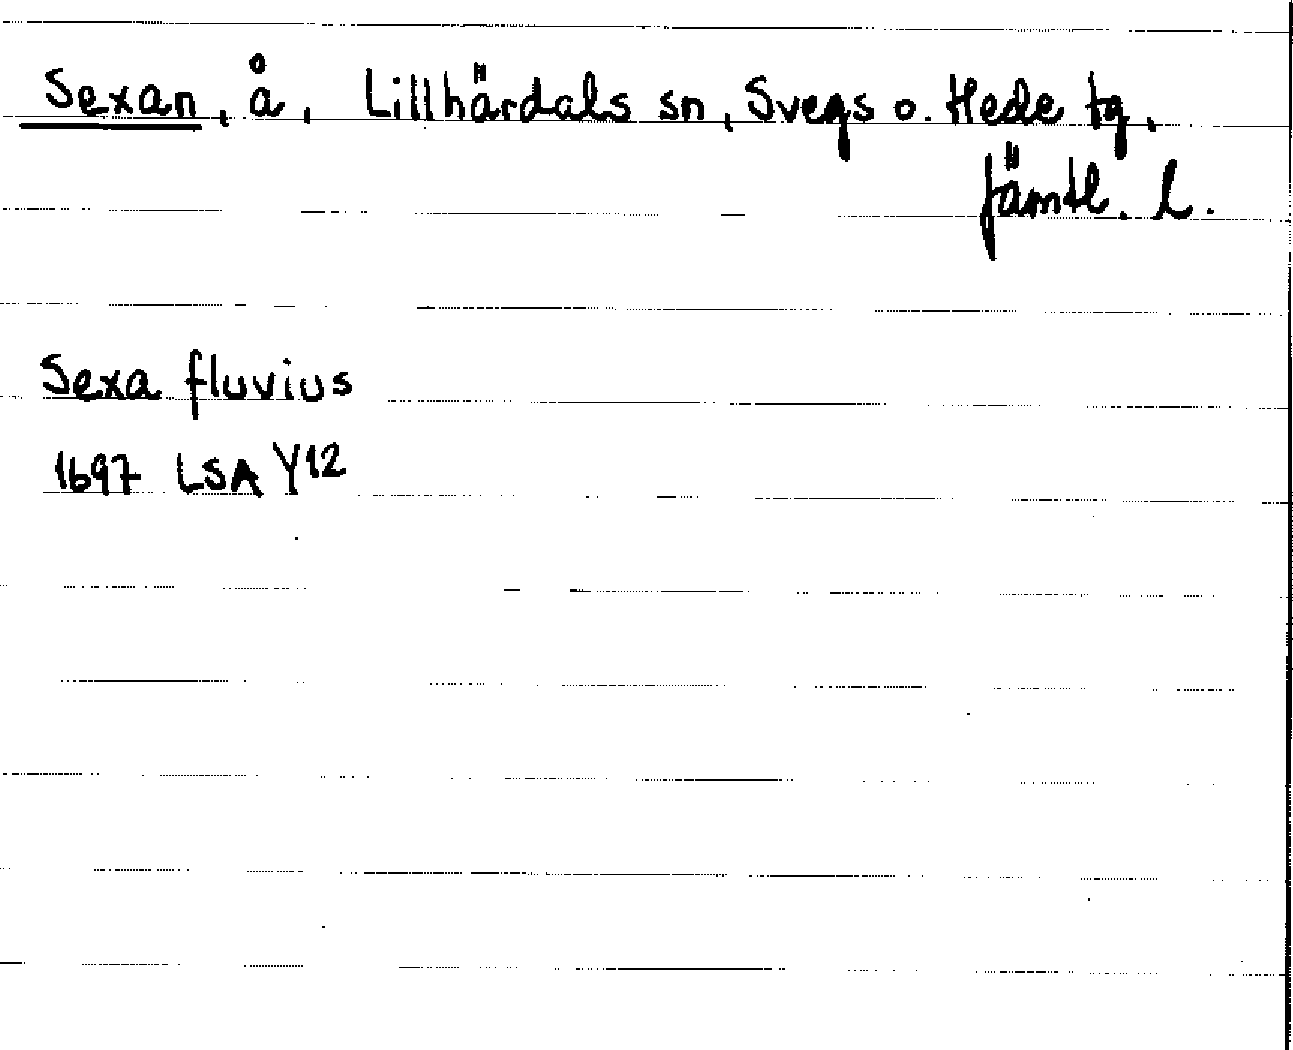 Sexan, å, Lillhärdals sn, Svegs o. Hede tg,
Jämtl. l.
Sexa fluvius
1697 LSA Y12